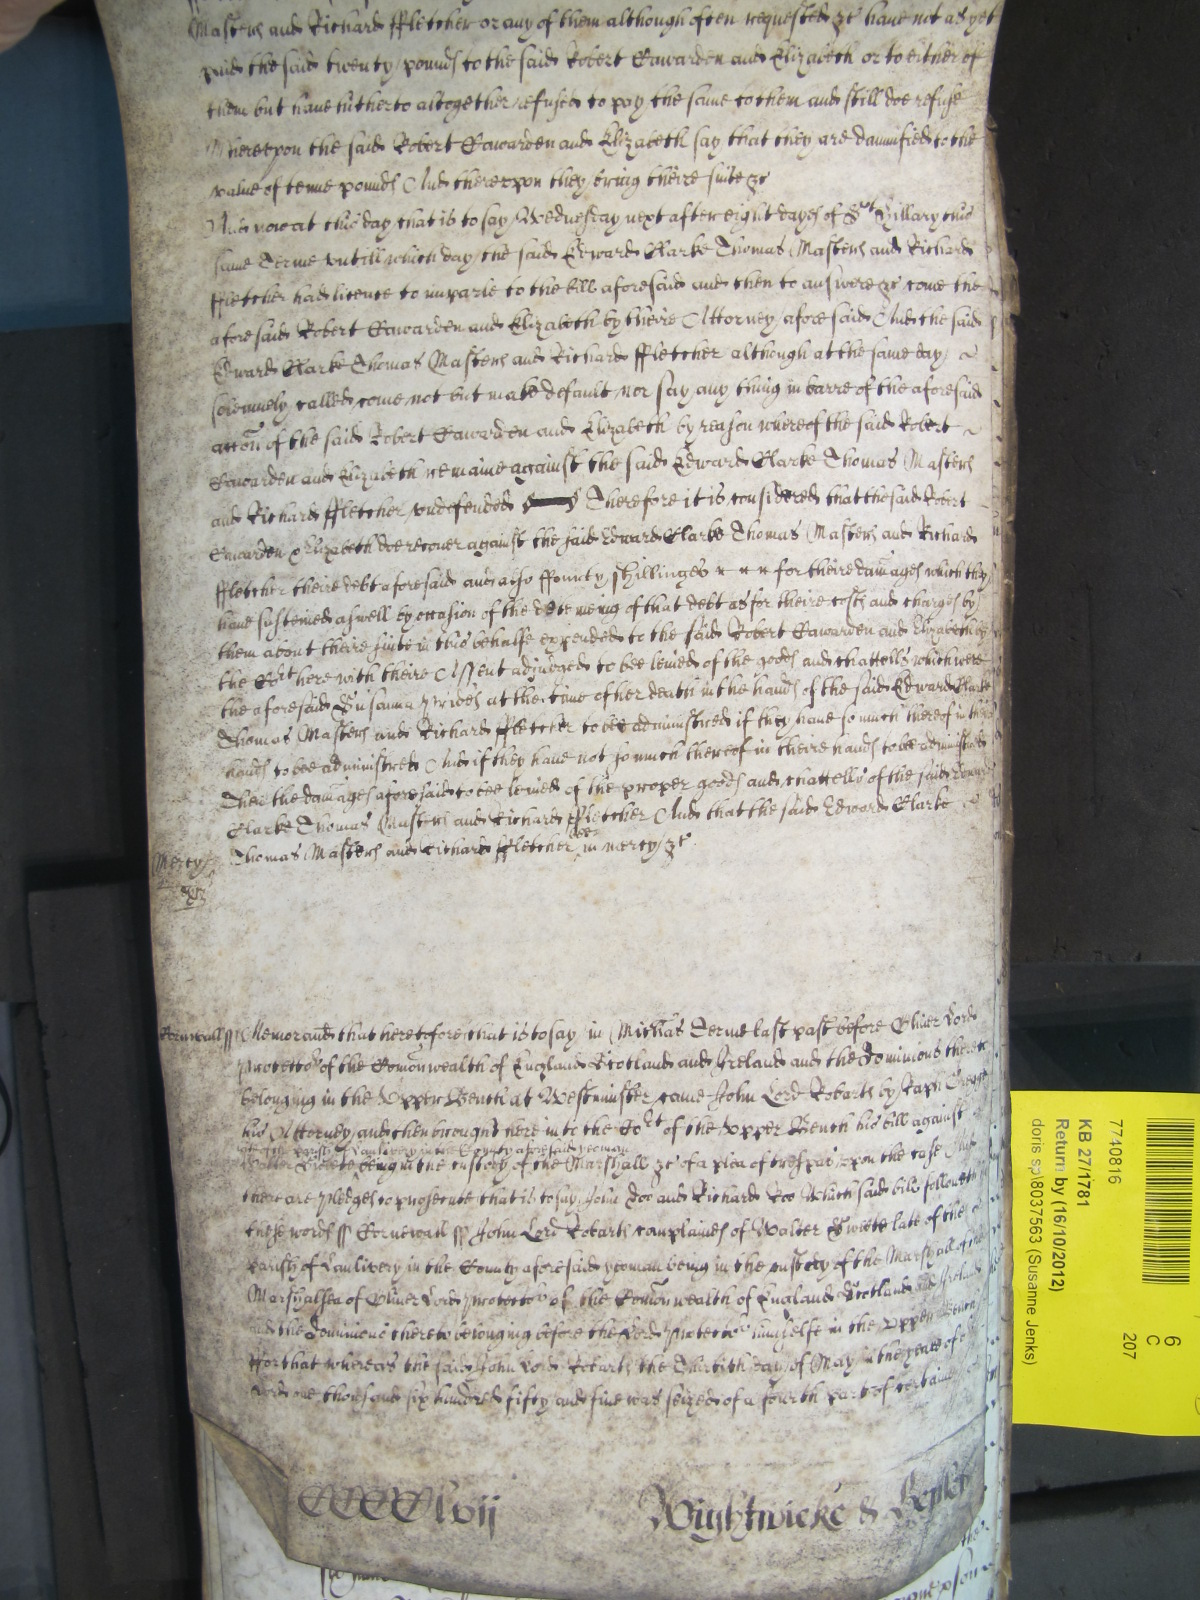 Masters and Richard ffletcher or any of them although often requested &c have not as yet
paid the said twenty pounds to the said Robert Eawarden and Elizabeth or to either of
them but have hitherto altogether refused to pay the same to them and still doe refuse
Whereupon the said Robert Eawarden and Elizabeth say that they are damnified to the
value of tenne pounds And thereupon they bring theire suite &c
And now at this day that is to say Wednesday next after eight dayes of St Hillary this
same Terme untill which day the said Edward Clarke Thomas Masters and Richard
ffletcher had licence to imparle to the bill aforesaid and then to answere &c come the
aforesaid Robert Eawarden and Elizabeth by theire Attorney aforesaid And the said
Edward Clarke Thomas Masters and Richard ffletcher although at the same day
solemnely called come not but make default nor say any thing in barre of the aforesaid
accon of the said Robert Eawarden and Elizabeth by reason whereof the said Robert
Eawarden and Elizabeth remaine against the said Edward Clarke Thomas Masters
and Richard ffletcher undefended Therefore it is considered that the said Robert
Eawarden & Elizabeth doe recover against the said Edward Clarke Thomas Masters and Richard
ffletcher theire debt aforesaid and also ffourty shillinges for theire damages which they
have susteined aswell by occasion of the deteineing of that debt as for theire costs and charges by
them about theire suite in this behalfe expended to the said Robert Eawarden and Elizabeth by
the Cort here with theire Assent adjudged to bee levied of the goods and chattells which were
the aforesaid Susanna Prides at the time of her death in the hands of the said Edward Clarke
Thomas Masters and Richard ffletcher to bee administred if they have so much thereof in theire
hands to bee administred And if they have not so much thereof in theire hands to bee administred
Then the damages aforesaid to bee levied of the proper goods and chattells of the said Edward
Clarke Thomas Masters and Richard ffletcher And that the said Edward Clarke
Thomas Masters and Richard ffletcher bee in mercy &c
Mercy
Cornwall ss Memorand that heretofore that is to say in Michas Terme last past before Oliver Lord
Protector of the Comonwealth of England Scotland and Ireland and the Dominions thereto
belonging in the Upper Bench at Westminster came John Lord Robarts by Raph Gregge
his Attorney and then brought here into the Cort of the Upper Bench his bill against
late of the parish of Lanlivery in the County aforesaid yeoman
Walter Sweete being in the custody of the Marshall &c of a plea of trespas upon the case And
there are Pledges to prosecute that is to say John Doo and Richard Roo Which said bill followeth
these words ss Cornewall ss John Lord Robarts complaines of Walter Sweete late of the
parish of Lanlivery in the County aforesaid yeoman being in the custody of the Marshall of the
Marshalsea of Oliver Lord Protector of the Comonwealth of England Scotland and Ireland
and the Dominions thereto belonging before the Lord Protector himselfe in the Upper Bench
ffor that whereas the said John Lord Robarts the Thirtith day of May in the yeare of
Lord one thousand six hundred fifty and five was seized of a fourth part of certaine
CCCClvij
Wightwicke &
7740816
KB 27/1781
Return by (16/10/2012)
doris sp\8037563 (Susanne Jenks)
6
C
207